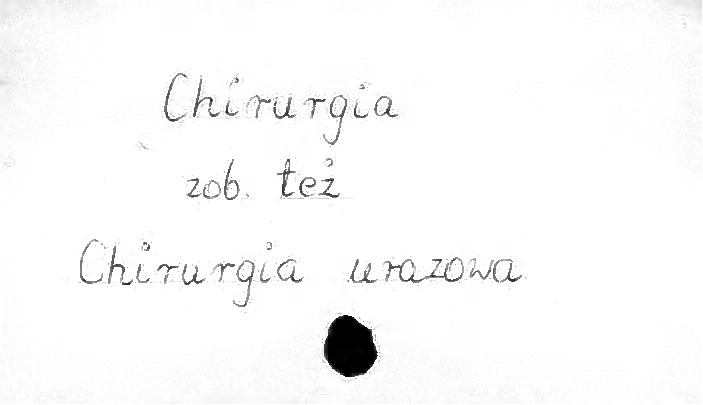 Chirurgia
zob. też
Chirurgia urazowa